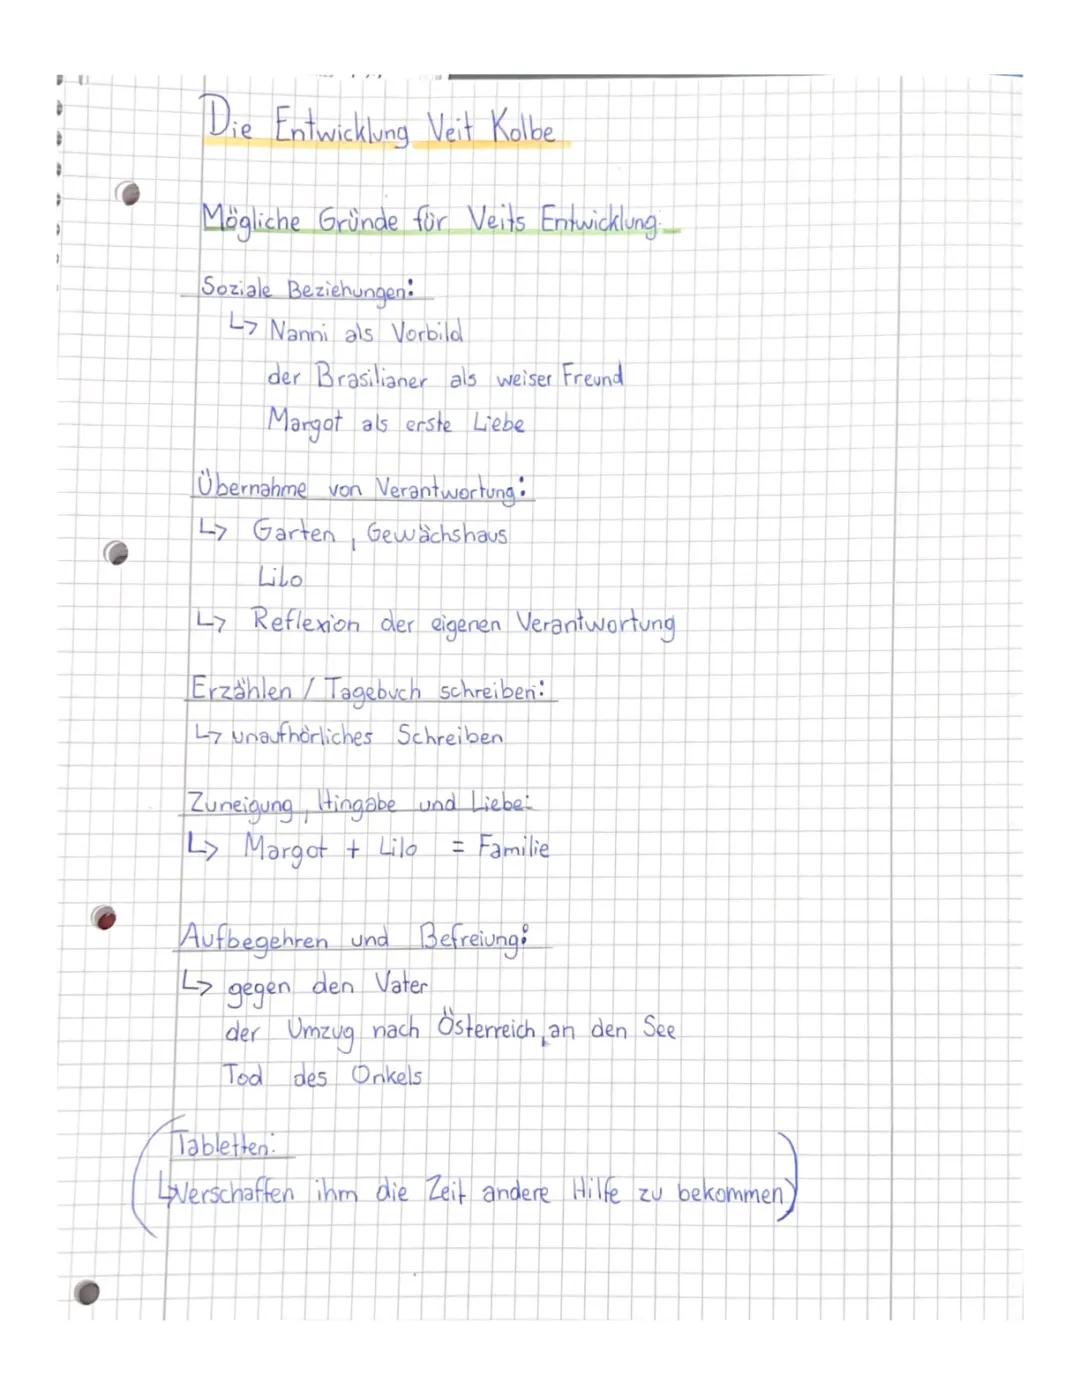 Die Entwicklung Veit Kolbe
Mögliche Gründe für Veits Entwicklung:
Soziale Beziehungen:
↳ Nanni als Vorbild
der Brasilianer als weiser Freund
Margot als erste Liebe
Übernahme von Verantwortung:
↳ Garten, Gewächshaus
Lilo
↳ Reflexion der eigenen Verantwortung
Erzählen / Tagebuch schreiben:
↳ unaufhörliches Schreiben
Zuneigung, Hingabe und Liebe:
↳ Margot + Lilo = Familie
Aufbegehren und Befreiung:
↳ gegen den Vater
der Umzug nach Österreich, an den See
Tod des Onkels
(Tabletten:
↳ Verschaffen ihm die Zeit andere Hilfe zu bekommen)